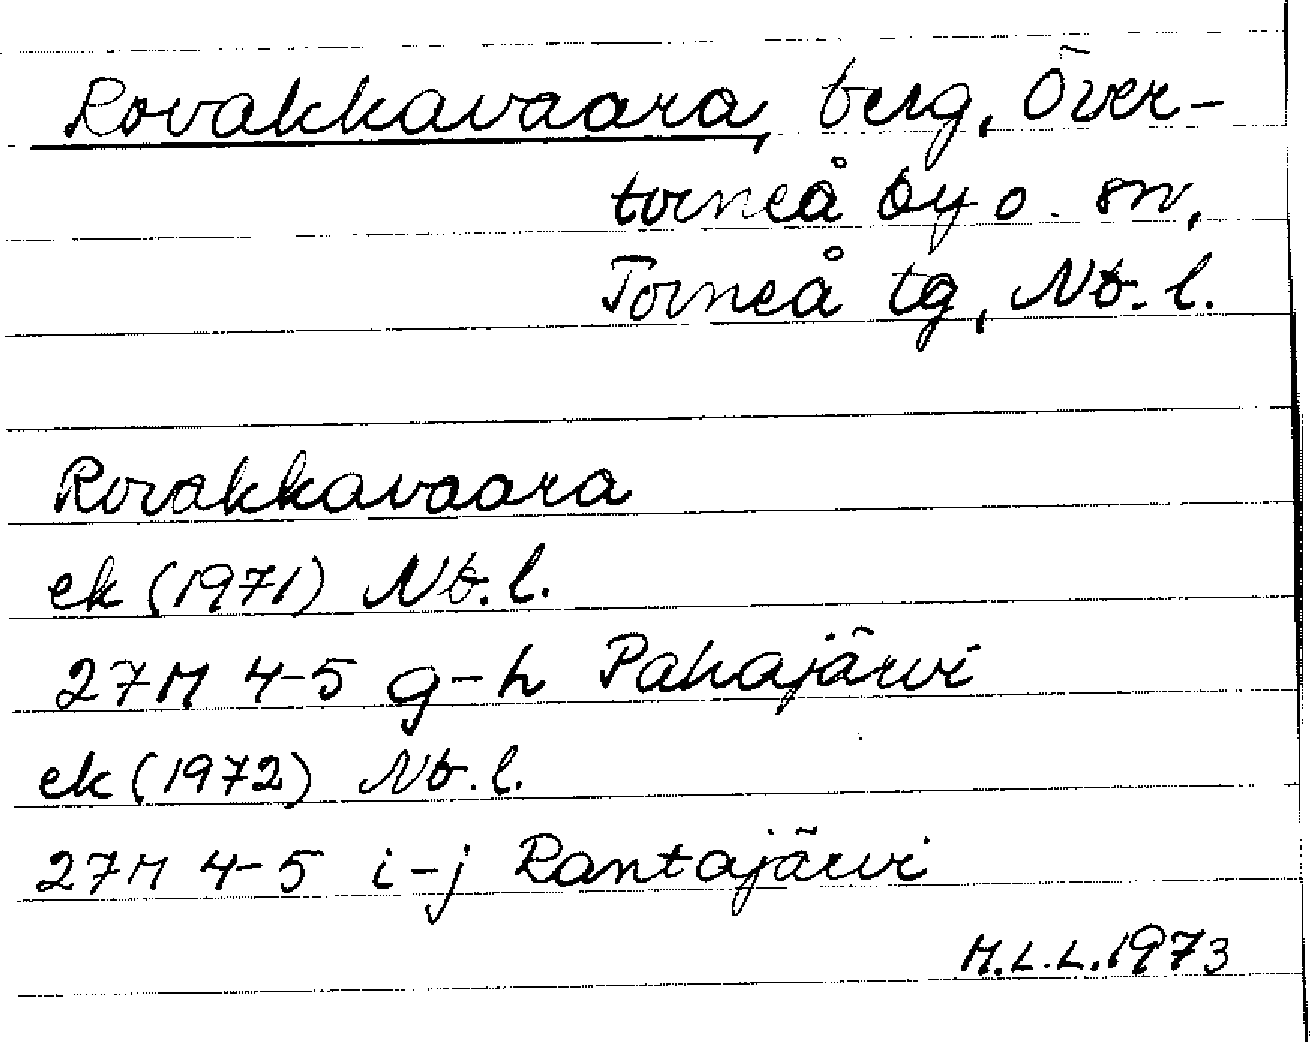 Rovakkavaara, berg, Över-
torneå by o. sn,
Torneå tg, Nb. l.
Rovakkavaara
ek (1971) Nb. l.
27M 4-5 g-h Pahajärvi
ek (1972) Nb. l.
27M 4-5 i-j Rantajärvi
M.L.L. 1973